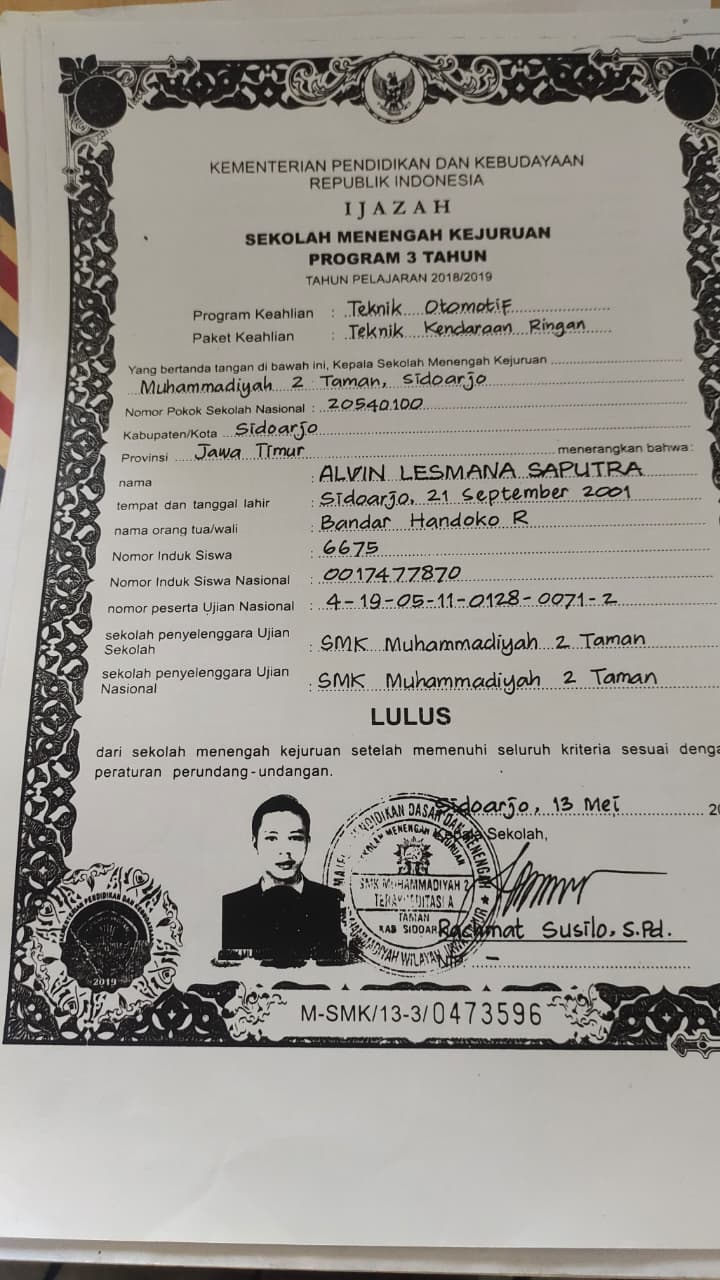 KEMENTERIAN PENDIDIKAN DAN KEBUDAYAAN
REPUBLIK INDONESIA
IJAZAH
SEKOLAH MENENGAH KEJURUAN
PROGRAM 3 TAHUN
TAHUN PELAJARAN 2018/2019
Program Keahlian : Teknik Otomotif
Paket Keahlian : Teknik Kendaraan Ringan
Yang bertanda tangan di bawah ini, Kepala Sekolah Menengah Kejuruan
Muhammadiyah 2 Taman, Sidoarjo
Nomor Pokok Sekolah Nasional : 20540100
Kabupaten/Kota Sidoarjo
Provinsi Jawa Timur menerangkan bahwa:
nama : ALVIN LESMANA SAPUTRA
tempat dan tanggal lahir : Sidoarjo, 21 September 2001
nama orang tua/wali : Bandar Handoko R
Nomor Induk Siswa : 6675
Nomor Induk Siswa Nasional : 0017477870
nomor peserta Ujian Nasional : 4-19-05-11-0128-0071-2
sekolah penyelenggara Ujian Sekolah : SMK Muhammadiyah 2 Taman
sekolah penyelenggara Ujian Nasional : SMK Muhammadiyah 2 Taman
LULUS
dari sekolah menengah kejuruan setelah memenuhi seluruh kriteria sesuai
peraturan perundang-undangan.
Sidoarjo, 13 Mei
Kepala Sekolah,
SMK MUHAMMADIYAH 2
TERAKREDITASI A
TAMAN
KAB SIDOAR
Rachmat Susilo, S.Pd.
2019
M-SMK/13-3/0473596